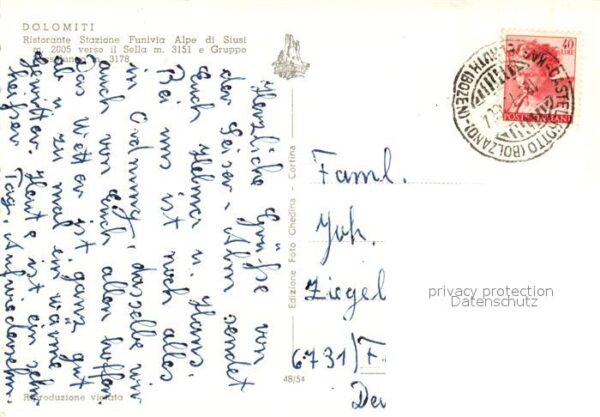 DOLOMITI
Ristorante Stazione Funivia Alpe di Siusi
m. 2005 verso il Sella m. 3151 e Gruppo
m. 3178
Herzliche Grüße von
der Seiser-Alm sendet
Euch Helma u. Hans.
Bei uns ist noch alles
in Ordnung, dasselbe wir
auch von Euch allen hoffen.
Das Wetter ist ganz gut
ab u. zu mal ein wärme
Gewitter. Heute ist ein sehr
heißer Tag. Aufwiedersehn.
Riproduzione vietata
48/54
Edizione Foto Ghedina - Cortina
40
LIRE
POSTE ITALIANE
(BOLZANO)
Faml.
Joh.
Ziegel
6731/F
Deu
privacy protection
Datenschutz